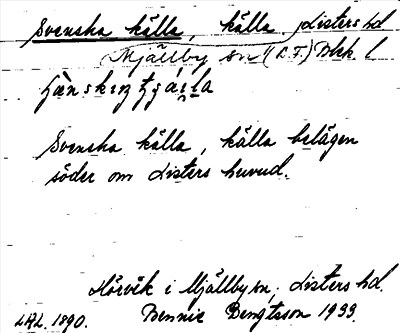 Svenska källa, källa Listers hd
Mjällby sn (L.F.) Blek. l
Svenska källa, källa belägen
söder om Listers huvud.
Hörvik i Mjällby sn, Listers hd.
LHL. 1890. Bennie Bengtsson 1933.